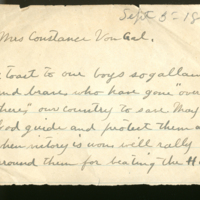 Sept 3 - 18
Mrs Constance Von Gal.
toast to our boys so gallan
nd brave who have gone "over
there" our country to save May
od guide and protect them a
hen victory is won will rally
round them for beating the H